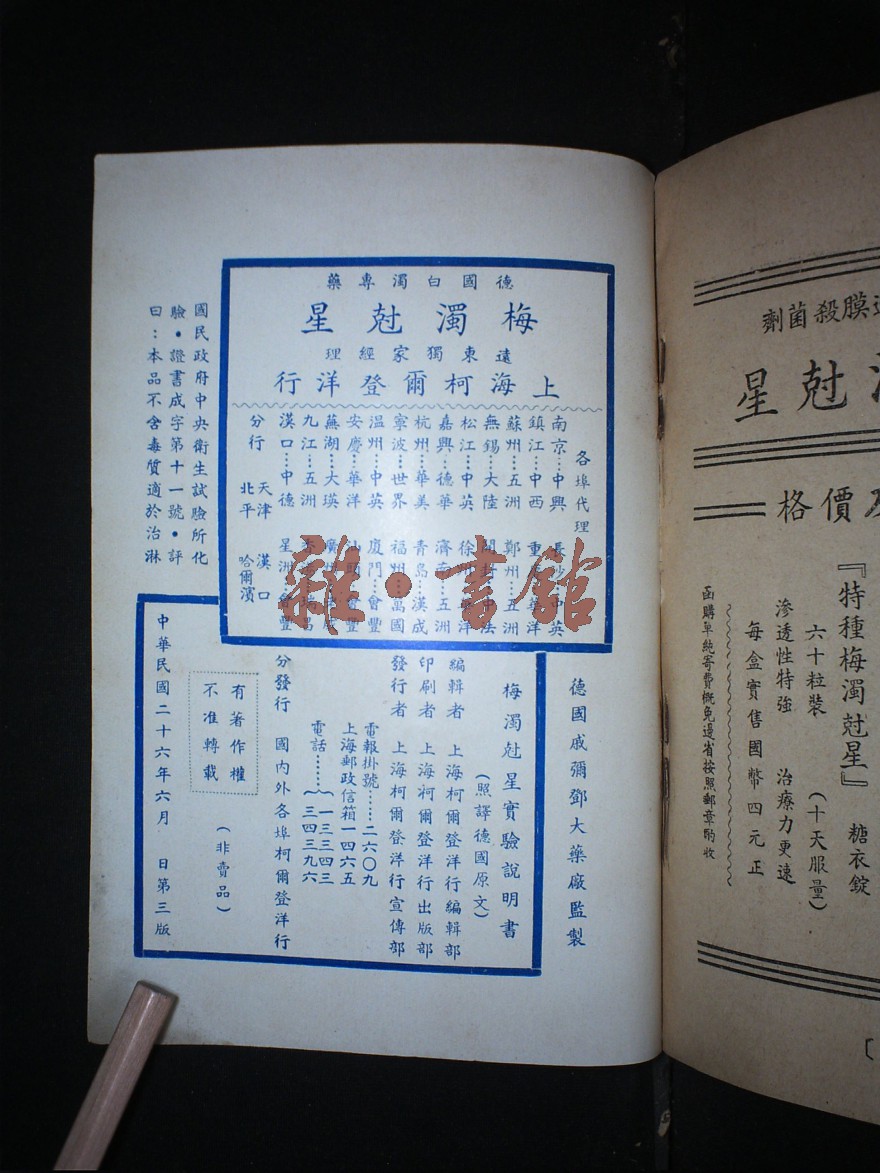 德國白濁專藥
梅濁尅星
遠東獨家經理
上海柯爾登洋行
各埠代理
南京…中興 中英
鎮江…中西 華洋
蘇州…五洲 鄭州…五洲
無錫…大陸
松江…中英 徐州
嘉興…德華 濟南…五洲
杭州…華美 青島…漢成
寧波…世界 福州…萬國
溫州…中英 廈門…會豐
安慶…華洋 汕頭…會豐
蕪湖…大瑛 廣州
九江…五洲 瑞昌
漢口…中德 星洲…會豐
分行 天津 漢口
北平 哈爾濱
國民政府中央衛生試驗所化
驗•證書成字第十一號•評
曰：本品不含毒質適於治淋
德國威彌鄧大藥廠監製
梅濁尅星實驗說明書
(照譯德國原文)
編輯者 上海柯爾登洋行編輯部
印刷者 上海柯爾登洋行出版部
發行者 上海柯爾登洋行宣傳部
電報掛號……二六〇九
上海郵政信箱一四六五
電話……一三三四三
三四三九六
分發行 國內外各埠柯爾登洋行
有著作權
不准轉載
(非賣品)
中華民國二十六年六月 日第三版
膜殺菌劑
尅星
價格
『特種梅濁尅星』糖衣錠
六十粒裝 (十天服量)
滲透性特強 治療力更速
每盒實售國幣四元正
函購單純寄費概免邊省按照郵章酌收
雜•書館